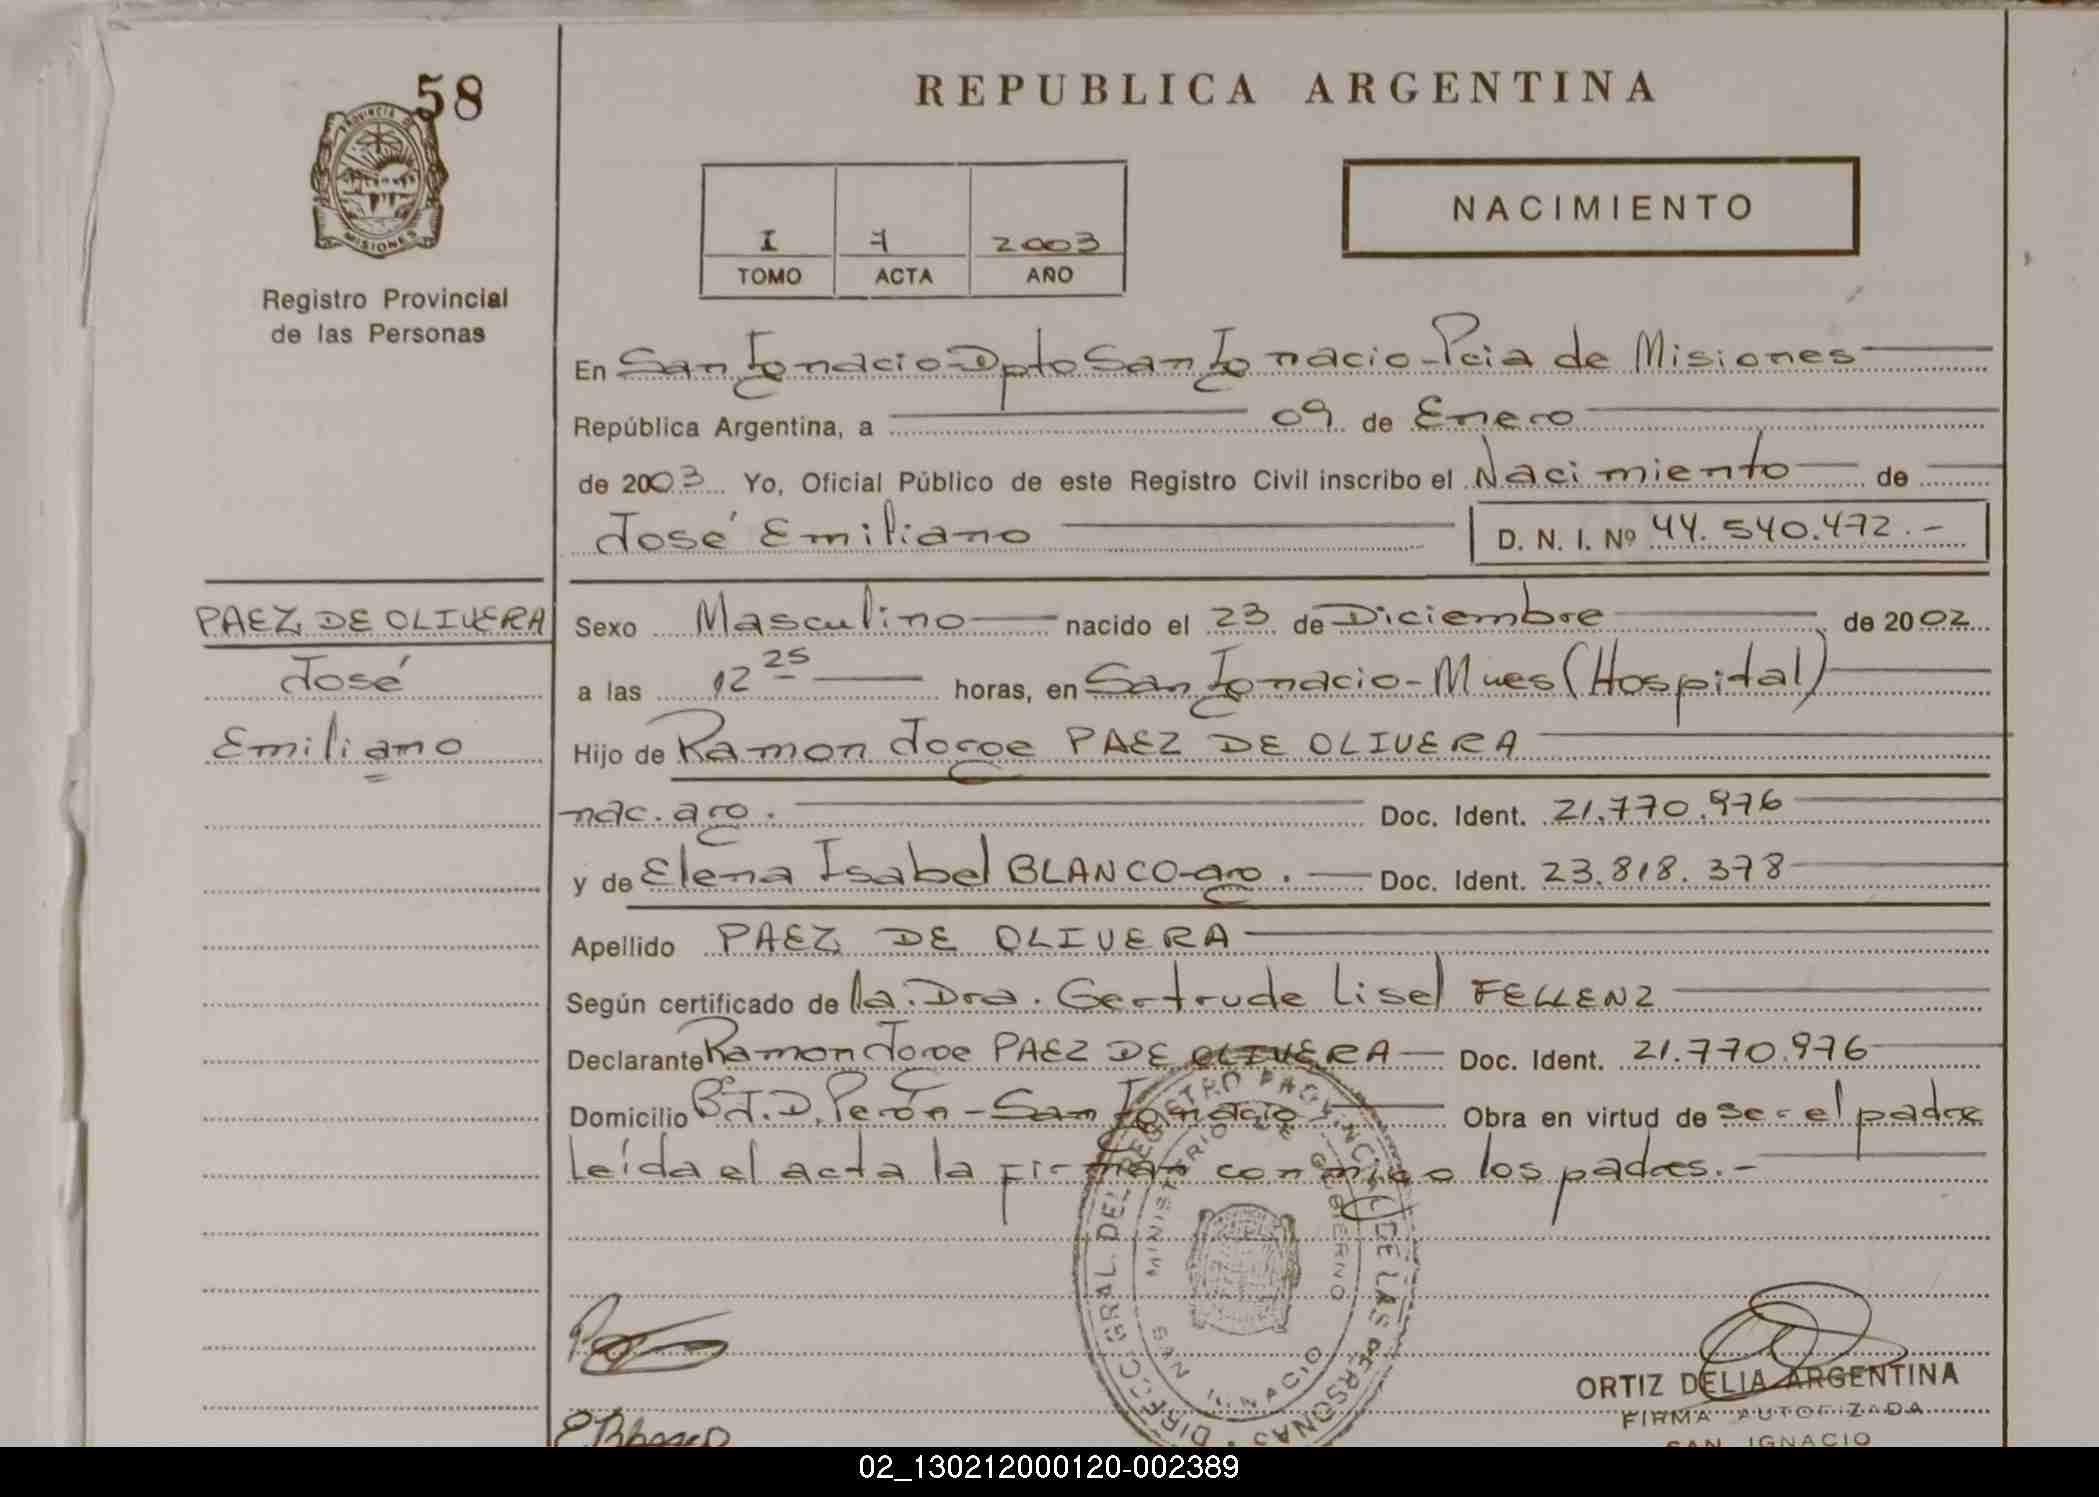 58
PROVINCIA DE
MISIONES
Registro Provincial
de las Personas
REPUBLICA ARGENTINA
I 7 2003
TOMO ACTA AÑO
NACIMIENTO
En San Ignacio Dpto San Ignacio - Pcia de Misiones
República Argentina, a 09 de Enero
de 2003 Yo, Oficial Público de este Registro Civil inscribo el Nacimiento de
José Emiliano D. N. I. Nº 44.540.472.-
PAEZ DE OLIVERA
José
Emiliano
Sexo Masculino nacido el 23 de Diciembre de 2002
a las 12 25 horas, en San Ignacio - Mnes (Hospital)
Hijo de Ramon Jorge PAEZ DE OLIVERA
nac. arg. Doc. Ident. 21.770.976
y de Elena Isabel BLANCO - arg. Doc. Ident. 23.818.378
Apellido PAEZ DE OLIVERA
Según certificado de la Dra. Gertrude Lisel FELLENZ
Declarante Ramon Jorge PAEZ DE OLIVERA Doc. Ident. 21.770.976
Domicilio Bº J.D. Perón - San Ignacio Obra en virtud de ser el padre
Leída el acta la firman conmigo los padres.-
DIRECC. GRAL. DEL REGISTRO PROVINCIAL DE LAS PERSONAS
MINISTERIO DE GOBIERNO
SAN IGNACIO
E Blanco
ORTIZ DELIA ARGENTINA
FIRMA AUTORIZADA
SAN IGNACIO
02_130212000120-002389